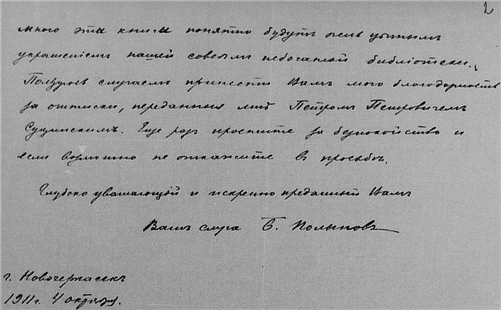 2
много эти книги понятно будутъ очень цѣннымъ
украшеніемъ нашей совсѣмъ небогатой библіотеки.
Пользуюсь случаемъ принести Вамъ мою благодарность
за оттиски, переданные мнѣ Петромъ Петровичемъ
Сущинскимъ. Еще разъ простите за безпокойство и
если возможно не откажите въ просьбѣ.
Глубоко уважающій и искренно преданный Вамъ
Вашъ слуга Б. Полыновъ
г. Новочеркасскъ
1911 г. 4 октября.